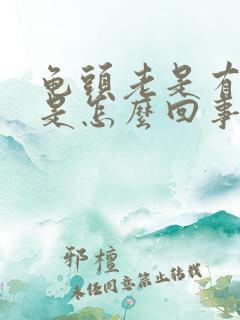 龟頭老是有
是怎麼回事
邪檀
未任同意禁止转载